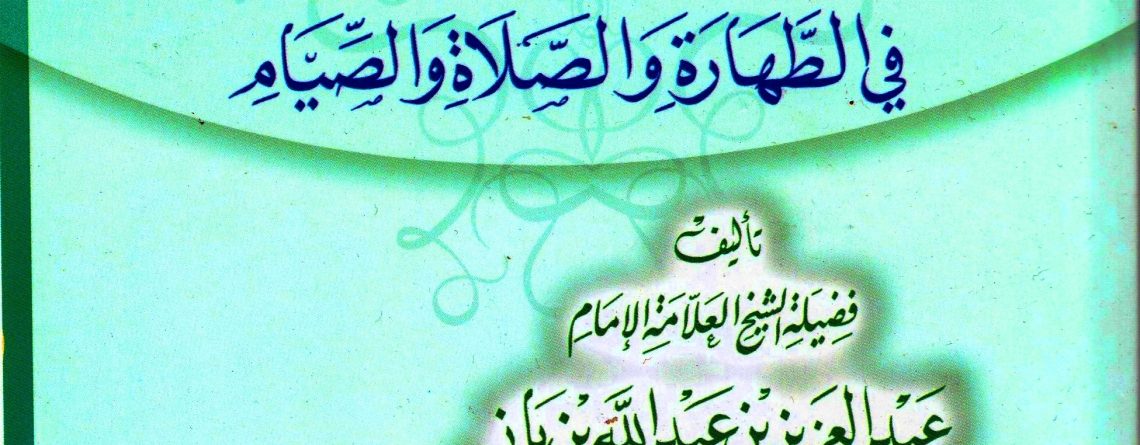 في الطَّهَارَةِ وَالصَّلَاةِ وَالصِّيَامِ
تأليف
فَضِيلَةِ الشَّيْخِ العَلّامَةِ الإِمَامِ
عَبْد العَزِيز بْن عَبْد اللَّه بْن بَاز